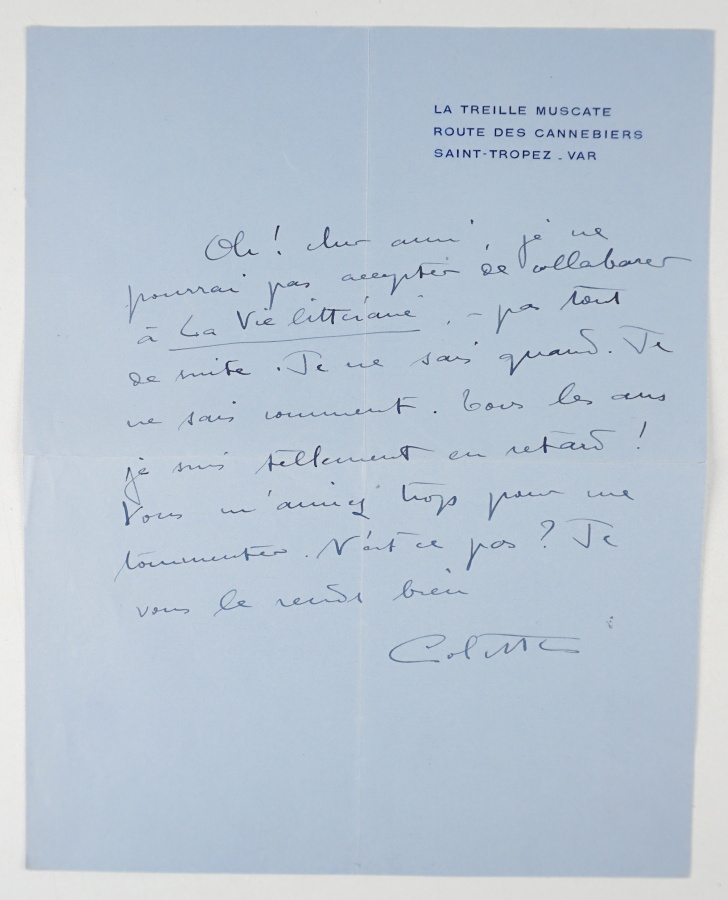 LA TREILLE MUSCATE
ROUTE DES CANNEBIERS
SAINT-TROPEZ . VAR
Oh ! cher ami, je ne
pourrai pas accepter de collaborer
à La Vie littéraire, - pas tout
de suite. Je ne sais quand. Je
ne sais comment. Tous les ans
je suis tellement en retard !
Vous m'aimez trop pour me
tourmenter. N'est ce pas ? Je
vous le rends bien
Colette